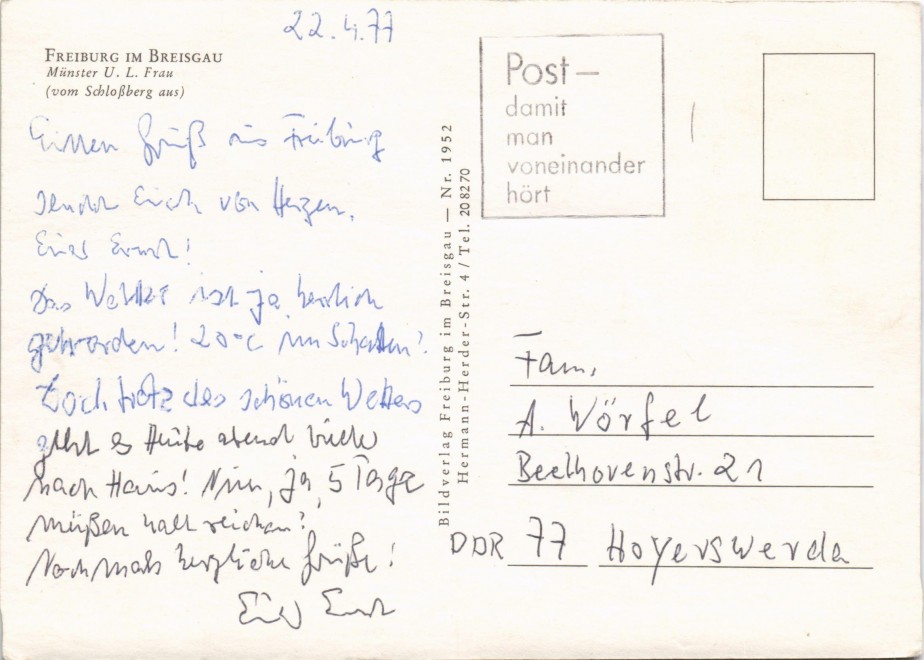 22.4.77
FREIBURG IM BREISGAU
Münster U. L. Frau
(vom Schloßberg aus)
Einen Gruß aus Freiburg
sendet Euch von Herzen,
Euer Ernst!
Das Wetter ist ja herrlich
geworden! 20°C im Schatten!
Doch trotz des schönen Wetters
geht es Heute abend wieder
nach Haus! Nun, ja, 5 Tage
müßen halt reichen!
Nochmals herzliche Grüße!
Euer Ernst
Bildverlag Freiburg im Breisgau — Nr. 1952
Hermann-Herder-Str. 4 / Tel. 208270
Post –
damit
man
voneinander
hört
Fam.
A. Wörfel
Beethovenstr. 21
DDR 77 Hoyerswerda